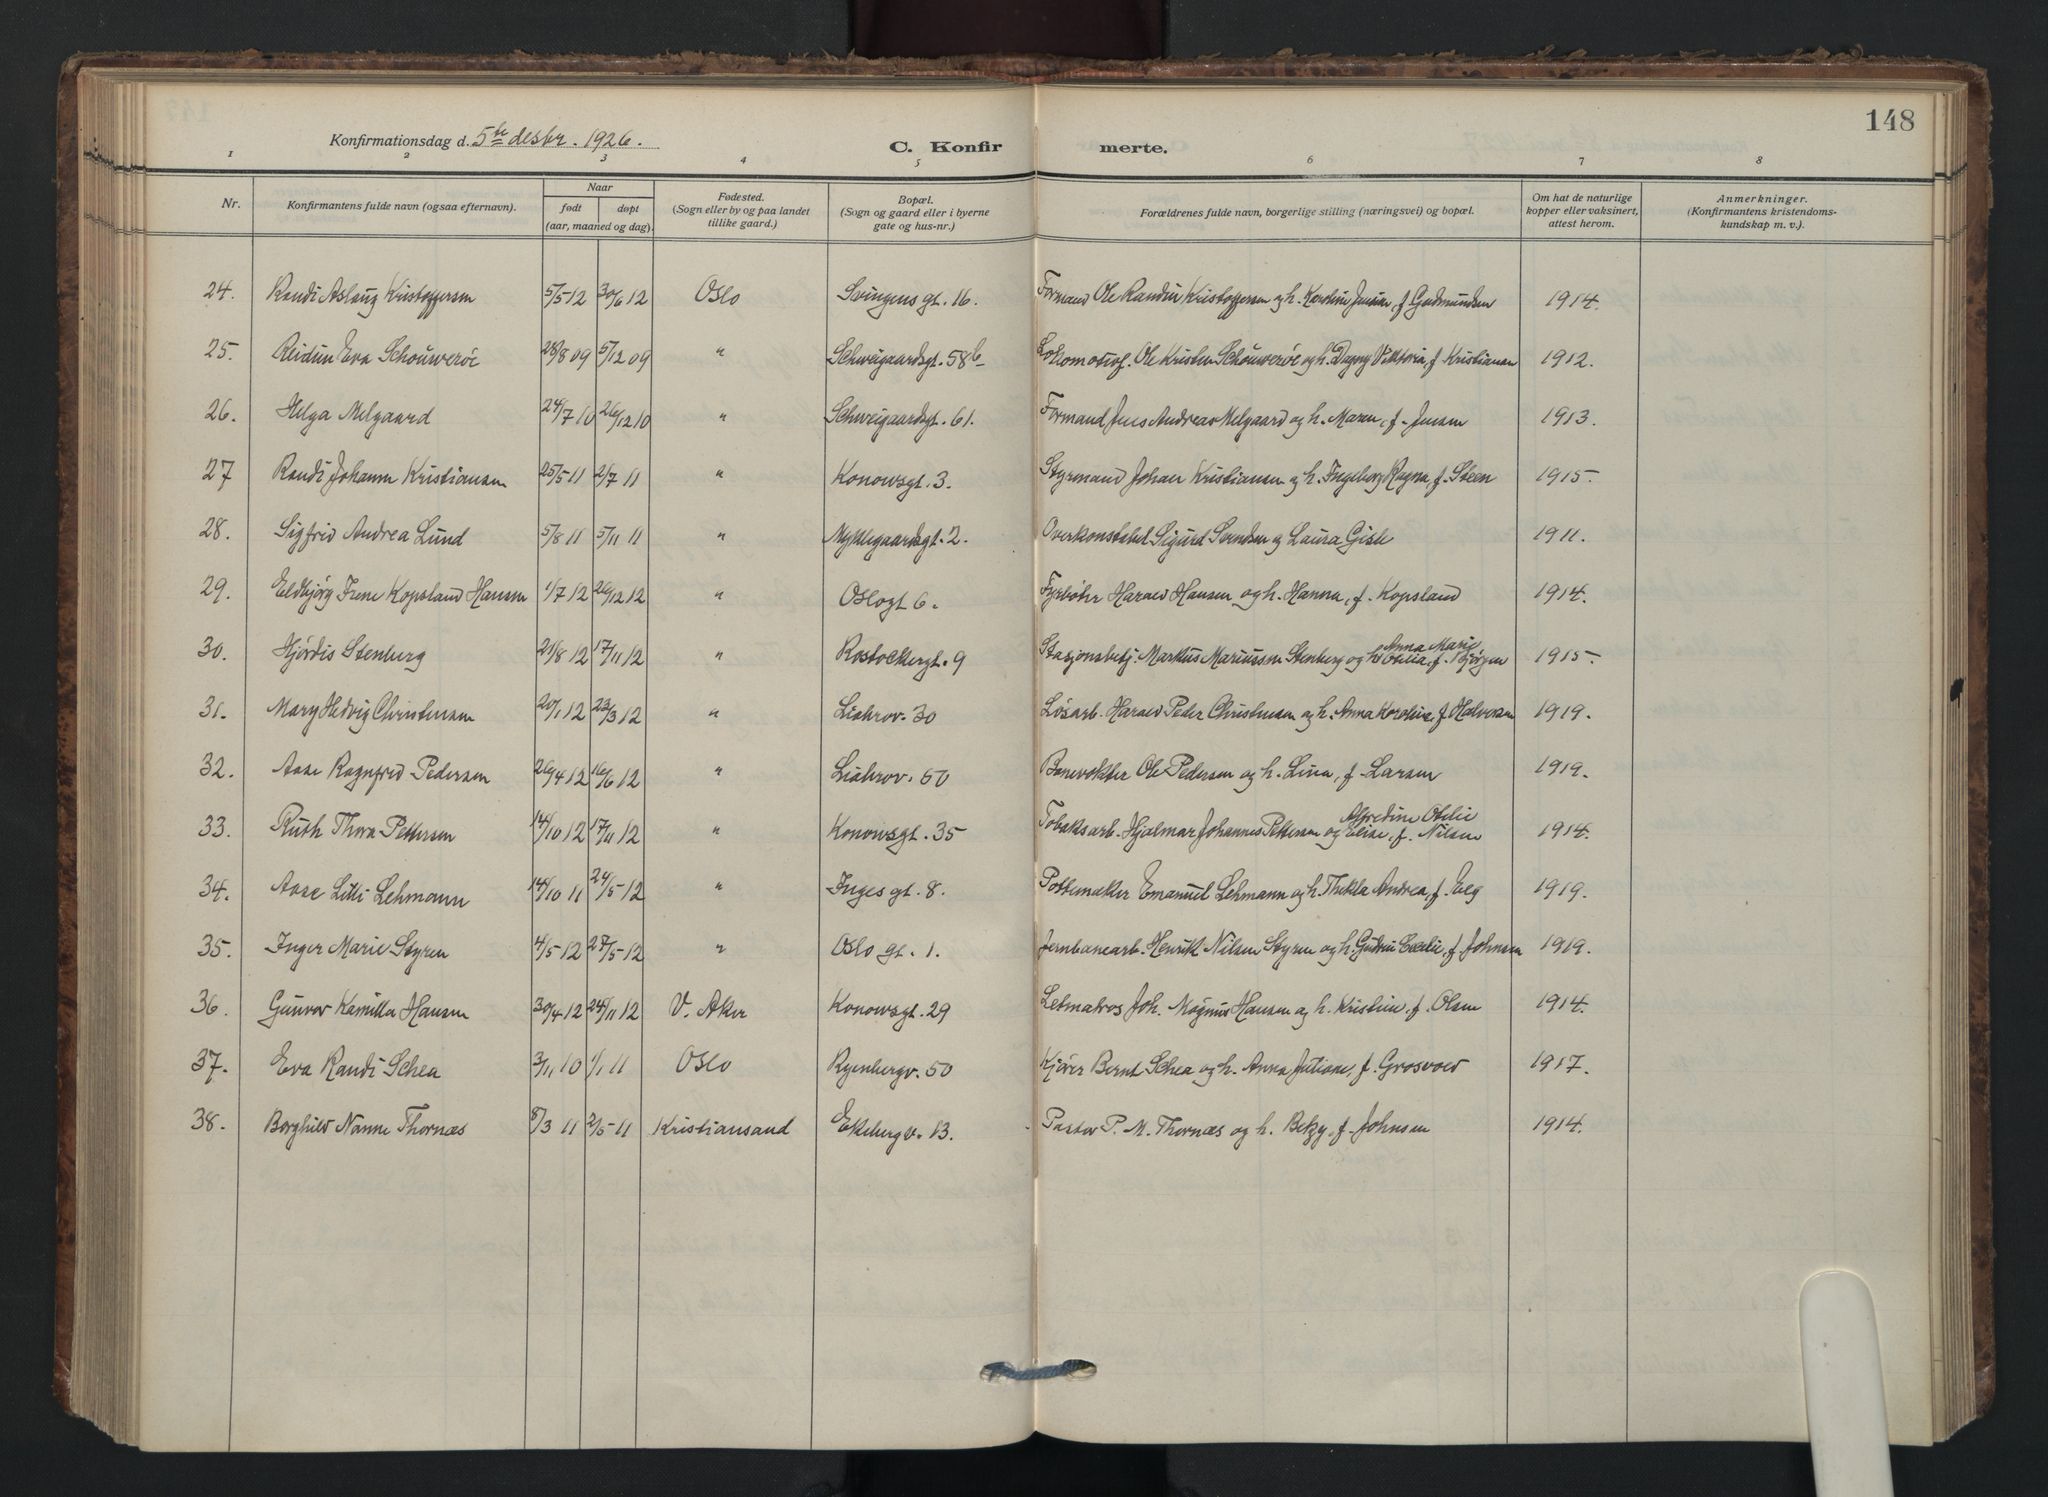 148
Konfirmationsdag d. 5te desbr. 1926.
C. Konfirmerte.
1 2 3 4 5 6 7 8
Nr. Konfirmantens fulde navn (ogsaa efternavn). Naar født døpt (aar, maaned og dag). Fødested. (Sogn eller by og paa landet tillike gaard.) Bopæl. (Sogn og gaard eller i byerne gate og hus-nr.) Forældrenes fulde navn, borgerlige stilling (næringsvei) og bopæl. Om hat de naturlige kopper eller vaksinert, attest herom. Anmerkninger. (Konfirmantens kristendoms-kundskap m. v.).
24. Randi Aslaug Kristoffersen 5/5 12 30/6 12 Oslo Svingens gt. 16. Formand Ole Randin Kristoffersen og h. Karoline Jensine, f. Gudmundsen 1914.
25. Reidun Eva Schouwerøe 28/8 09 5/12 09 " Schweigaardsgt. 58b Lokomotivf. Ole Kristian Schouwerøe og h. Dagny Viktoria, f. Kristiansen 1912.
26. Helga Melgaard 24/7 10 26/12 10 " Schweigaardsgt. 61. Formand Jens Andreas Melgaard og h. Maren, f. Jensen 1913.
27 Randi Johanne Kristiansen 25/5 11 2/7 11 " Konowsgt. 3. Styrmand Johan Kristiansen og h. Ingeborg Ragna, f. Steen 1915.
28. Sigfrid Andrea Lund 5/8 11 5/11 11 " Myklegaardsgt. 2. Overkonstabel Sigurd Svendsen og Laura Gisle 1911.
29. Eldbjørg Irene Kopsland Hansen 1/7 12 26/12 12 " Oslogt 6. Fyrbøter Harald Hansen og h. Hanna, f. Kopsland 1914.
30. Hjørdis Stenberg 21/8 12 17/11 12 " Rostockergt. 9 Stasjonsbetj. Markus Mariussen Stenberg og h. Anna Marie Otilia, f. Bjørgen 1915.
31. Mary Hedvig Christensen 20/1 12 23/3 12 " Liabrov. 30 Løsarb. Harald Peder Christensen og h. Anna Karoline, f. Halvorsen 1919.
32. Aase Ragnfrid Pedersen 26/4 12 16/6 12 " Liabrov. 50 Banevokter Ole Pedersen og h. Lina, f. Larsen 1919.
33. Ruth Thora Pettersen 14/10 12 17/11 12 " Konowsgt. 35 Tobaksarb. Hjalmar Johannes Pettersen og Alfredine Otilie Elise, f. Nilsen 1914.
34. Aase Lilli Lehmann 14/10 11 24/5 12 " Inges gt. 8. Pottemaker Emanuel Lehmann og h. Thekla Andrea, f. Elg 1919.
35. Inger Marie Styren 4/5 12 27/5 12 " Oslo gt. 1. Jernbanearb. Henrik Nilsen Styren og h. Gudrun Cecilie, f. Johnsen 1919.
36. Gunvor Kamilla Hansen 30/4 12 24/11 12 V. Aker Konowsgt. 29 Letmatros Joh. Magnus Hansen og h. Kristine, f. Olsen 1914.
37. Eva Randi Schea 3/11 10 1/1 11 Oslo Ryenbergv. 50 Kjører Bernt Schea og h. Anna Juliane, f. Grosvold 1917.
38. Borghild Nanne Thornæs 8/3 11 2/5 11 Kristiansand Ekebergv. 13. Pastor P. M. Thornæs og h. Betzy, f. Johnsen 1914.